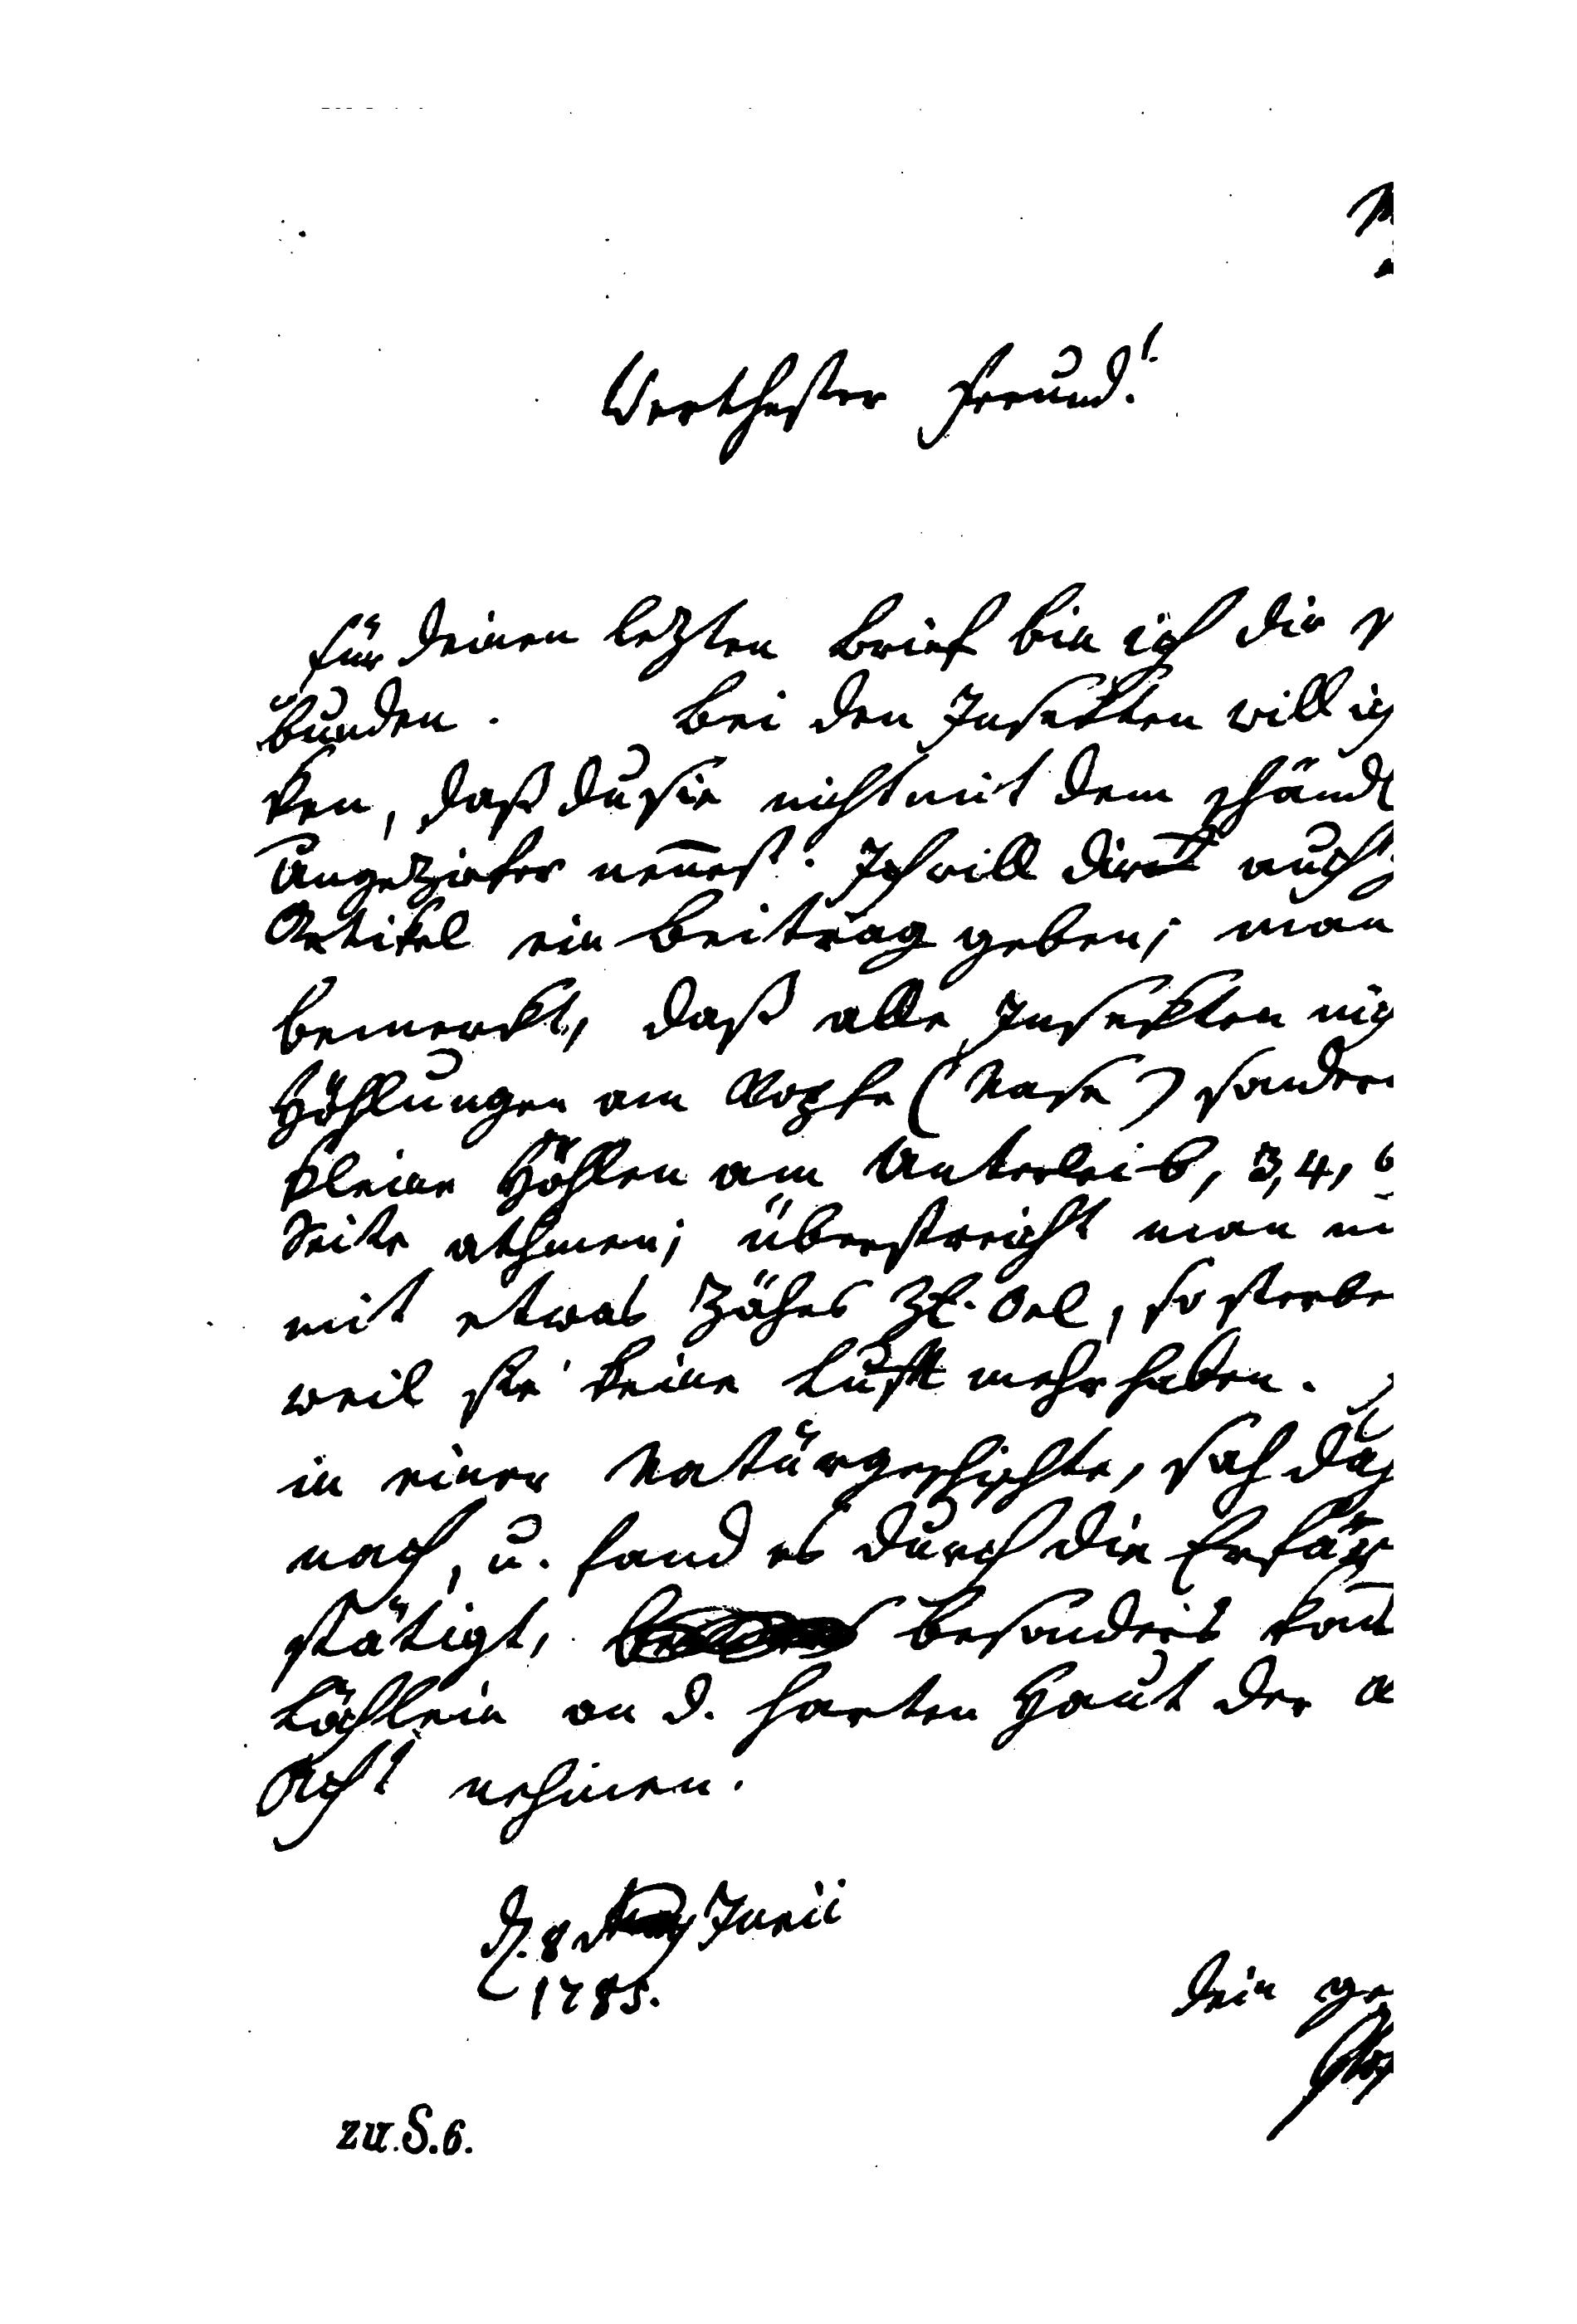 Werthester Freund!
für deinen lezten Brief bin ich dir
bunden. Bei den Insekten will ich
ken, daß du sie nicht mit dem schändl
Ungeziefer nennest. Ich will dir auch
Artikel ein Beitrag geben; man
bemerkt, daß alle Insekten nich
Höhlungen am Kopfe (Nase) sonder
kleine Höhlen am Unterleib, 3, 4,
Seite athmen; überstreicht man
mit etwas Zähes Zb. Oel, so sterbe
weil sie keine Luft mehr haben.
in einer Naturgeschichte, sah
nach, u. fand es durch die Erfar
stätigt, besonders kan
Löchlein an d. harten Haut der
Acht nehmen.
d. 8 Junii
1785.
Dein ge
zu S. 6.